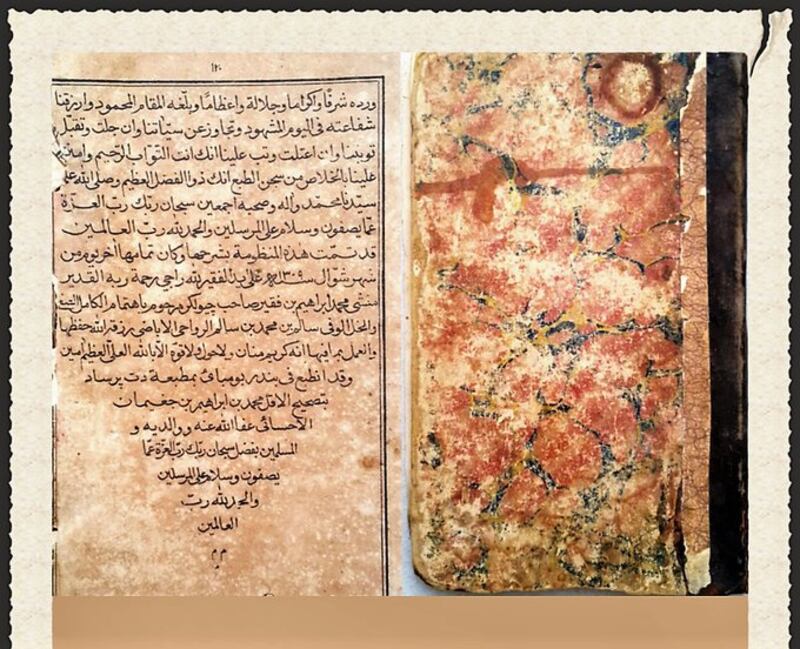 ١٢٠
وزده شرفًا واكراما وجلالة واعظامًا وبلغه المقام المحمود وارزقنا
شفاعته في اليوم المشهود وتجاوز عن سيأتنا وان جلت وتقبل
توبتنا وان اعتلت وتب علينا انك انت التواب الرحيم وامنن
علينا بالخلاص من سجن الطبع انك ذو الفضل العظيم وصلى الله على
سيدنا محمد وآله وصحبه اجمعين سبحان ربك رب العزة
عما يصفون وسلام على المرسلين والحمد لله رب العالمين
قد تمت هذه المنظومة بشرحها وكان تمامها آخر يوم من
شهر شوال سنة ١٣٠٩هـ على يد الفقير لله راجي رحمة ربه القدير
منشي محمد ابراهيم بن فقير صاحب مرحوم باهتمام الكامل
والخل الوفي سالم بن محمد بن سالم الرواحي الاباضي رزقه الله حفظها
والعمل بما فيها انه كريم منان ولا حول ولا قوة الا بالله العلي العظيم امين
وقد انطبع في بندر بومبائ بمطبعة دت پرساد
بتصحيح الاقل محمد بن ابراهيم بن جغيمان
الاحسائي عفا الله عنه ووالديه و
المسلمين بفضل سبحان ربك رب العزة عما
يصفون وسلام على المرسلين
والحمد لله رب
العالمين
م م
م